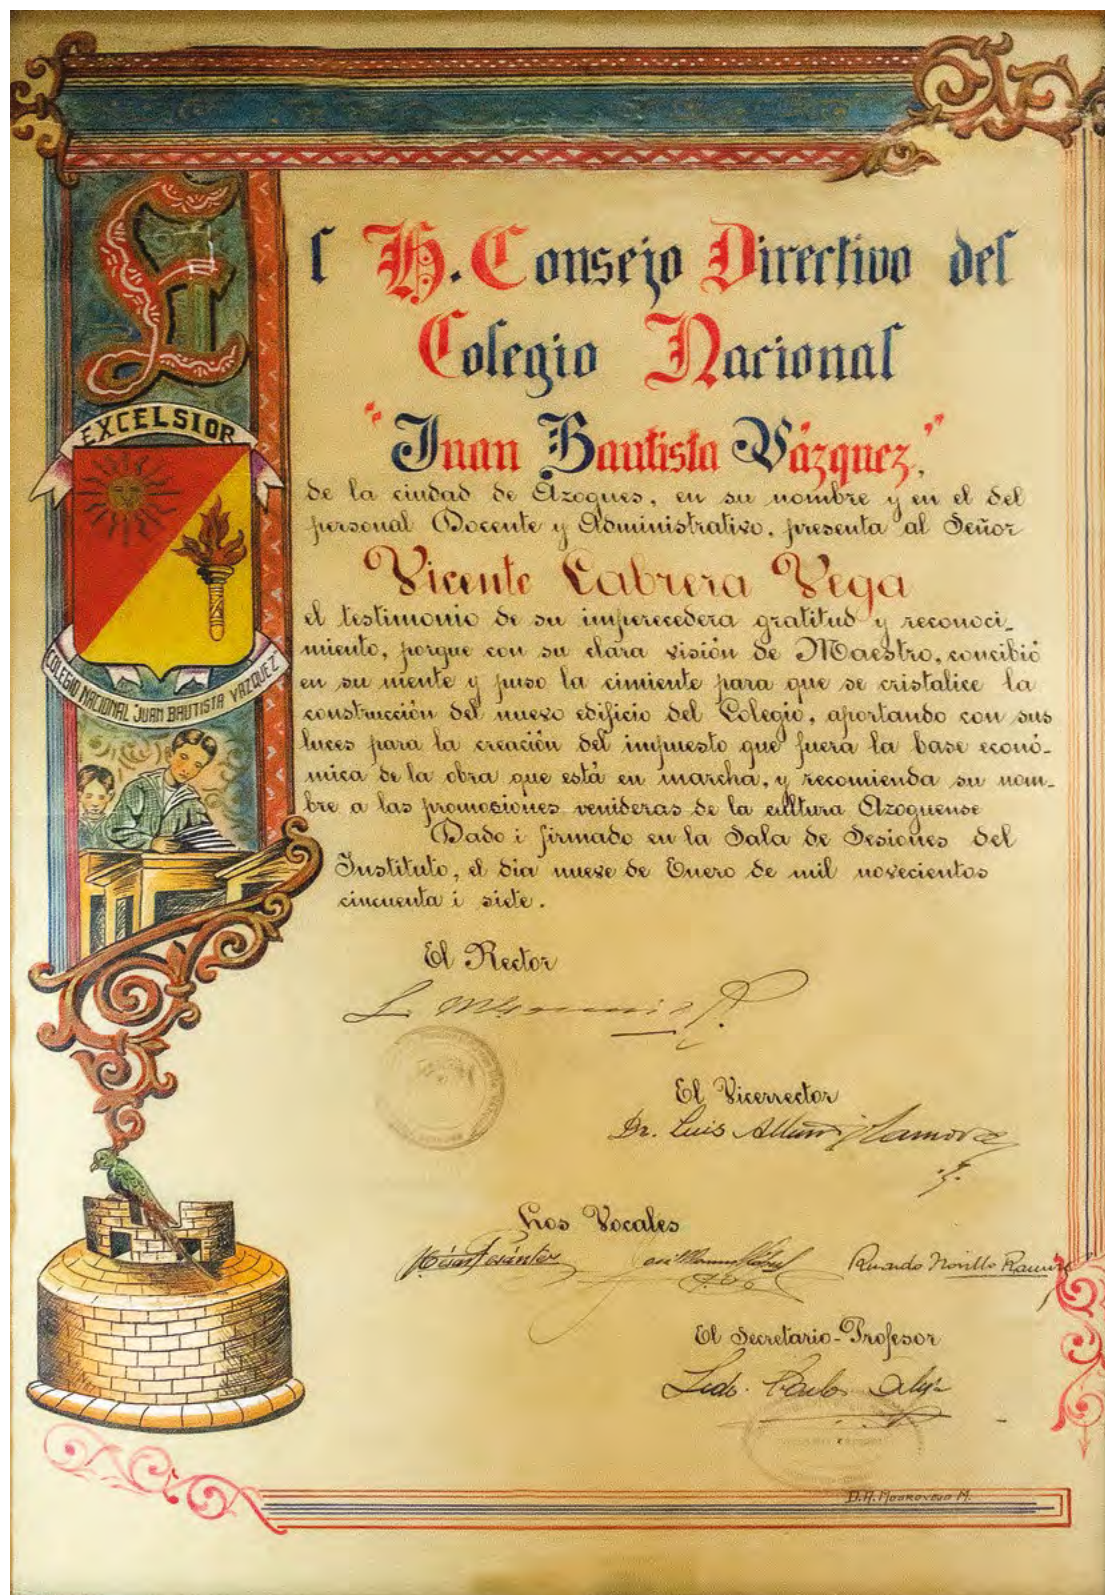 El H. Consejo Directivo del
Colegio Nacional
"Juan Bautista Vázquez",
de la ciudad de Azogues, en su nombre y en el del
personal Docente y Administrativo, presenta al Señor
Vicente Cabrera Vega
el testimonio de su imperecedera gratitud y reconoci-
miento, porque con su clara visión de Maestro, concibió
en su mente y puso la cimiente para que se cristalice la
construcción del nuevo edificio del Colegio, aportando con sus
luces para la creación del impuesto que fuera la base econó-
mica de la obra que está en marcha, y recomienda su nom-
bre a las promociones venideras de la cultura Azogueense
Dado i firmado en la Sala de Sesiones del
Instituto, el día nueve de Enero de mil novecientos
cincuenta i siete.
EXCELSIOR
COLEGIO NACIONAL "JUAN BAUTISTA VAZQUEZ"
El Rector
El Vicerrector
Dr. Luis
Los Vocales
Ricardo Novillo
El Secretario-Profesor
Lcdo. Carlos